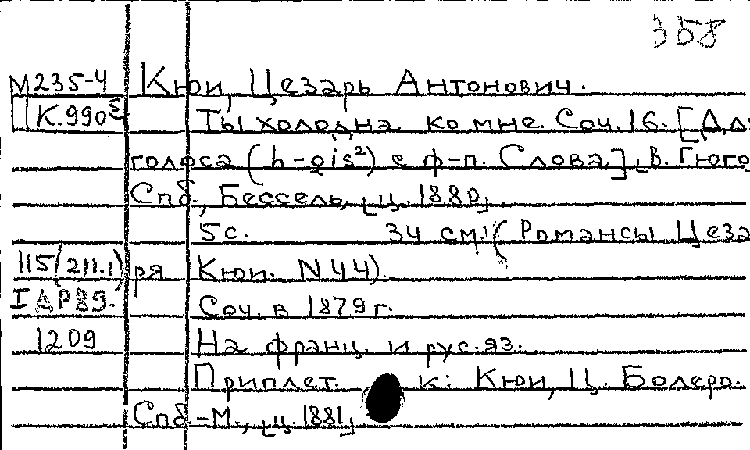 358
М235-4 Кюи, Цезарь Антонович.
К.990 Ты холодна ко мне. Соч. 16. [Для
голоса (h-gis²) с ф-п. Слова], В. Гюго
Спб, Бессель, [ц. 1880]
5с. 34 см. (Романсы Цеза
115(211.1) ря Кюи. N44).
I ДР89. Соч. в 1879 г.
1209 На франц. и рус. яз.
Приплет. к: Кюи, Ц. Болеро.
Спб-М., [ц. 1881]